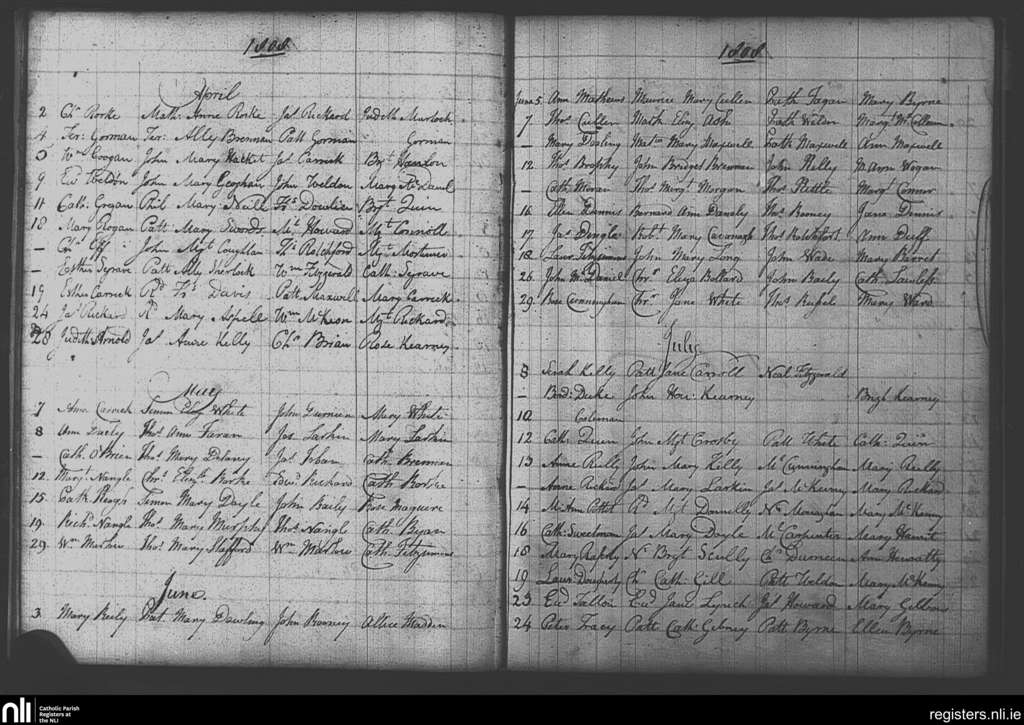 1808
April
2 Chr Rorke Math: Anne Rorke Jas Rickard Judith Murlock
4 Ter: Gorman Ter: Alley Brennan Patt Gorman Gorman
5 Wm Coogan John Mary Hacket Jas Carrick Bgt
9 Ed Weldon John Mary Geoghan John Weldon Mary McDaniel
11 Cath: Grogan Phil Mary Neill Frs Dowlin Bgt Quin
18 Mary Rogan Patt Mary Swords Ml Howard Mgt Connoll
— Chr John Mgt Coughlan Ths Rotchford Mgt Mortimer
— Esther Syrave Patt Ally Sherlock Wm Fitzgerald Cath: Syrave
19 Esther Carrick Rd Frs Davis Patt Maxwell Mary Carrick
24 Jas Rickard Rd Mary Aspell Wm McKeon Mgt Rickard
28 Judith Arnold Jas Anne Kelly Chr Brian Rose Kearney
May
7 Ann Carrick Simon Eliz White John Mary White
8 Ann Thos Ann Faran Jas Larkin Mary Larkin
— Cath: O'Brien Thos Mary Delany Jas Cath: Brennan
12 Margt Nangle Chrs Elizth Rorke Edwd Rickard Cath: Rorke
15 Cath Keogh Simon Mary Doyle John Baily Rose Maguire
19 Richd Nangle Thos Mary Murphy Thos Nangle Cath: Byan
29 Wm Thos Mary Stafford Wm Cath: Fitzsimons
June
3 Mary Reily Pat. Mary Dowling John Allice Madden
1808
June 5 Ann Mathews Maurice Mary Cullen Cath Fagan Mary Byrne
7 Thos Cullen Math Eliz Ash Cath Weldon Margt McCollum
— Mary Darling Matw Mary Maxwell Cath Maxwell Ann Maxwell
12 Thos Brophy John Bridget Brennan John Kelly M. Ann Wogan
— Cath Moran Thos Margt Morgan Thos Pettle Margt Connor
16 Ellen Dennis Bernard Ann Danaly Thos Rooney Jane Dennis
17 Jas Dingle Robt Mary Cavanagh Ann Duff
18 Laur Fitzsimons John Mary Long John Wade Mary Barret
26 John McDaniel Chrs Eliza Bollard John Baily Cath. Lawless
29 Rose Cunningham Chrs Jane White Thos Mary Ward
July
8 Sarah Kelly Patt Jane Carroll Neal Fitzgerald
— Bend: Duke John Hon. Kearney Brigt Kearney
10 Coleman
12 Cath: Queen John Mgt Crosby Patt White Cath: Quin
13 Anne Reilly John Mary Kelly Ml Cunningham Mary Reilly
— Anne Jas Mary Larkin Jas McKenny Mary Rickard
14 M. Ann Potter Rd Mgt Donnelly Ns Monaghan Mary McKenny
16 Cath: Sweetman Jas Mary Doyle Ml Carpenter Mary
18 Mary Ns Bgt Scully Chr Ann
19 Laur Dougherty Chr Cath: Gill Patt Weldon Mary McKenny
23 Ed Fallon Ed Jane Lynch Jas Howard Mary Gibbons
24 Peter Tracey Patt Cath: Gibney Patt Byrne Ellen Byrne
nli
Catholic Parish
Registers at
the NLI
registers.nli.ie